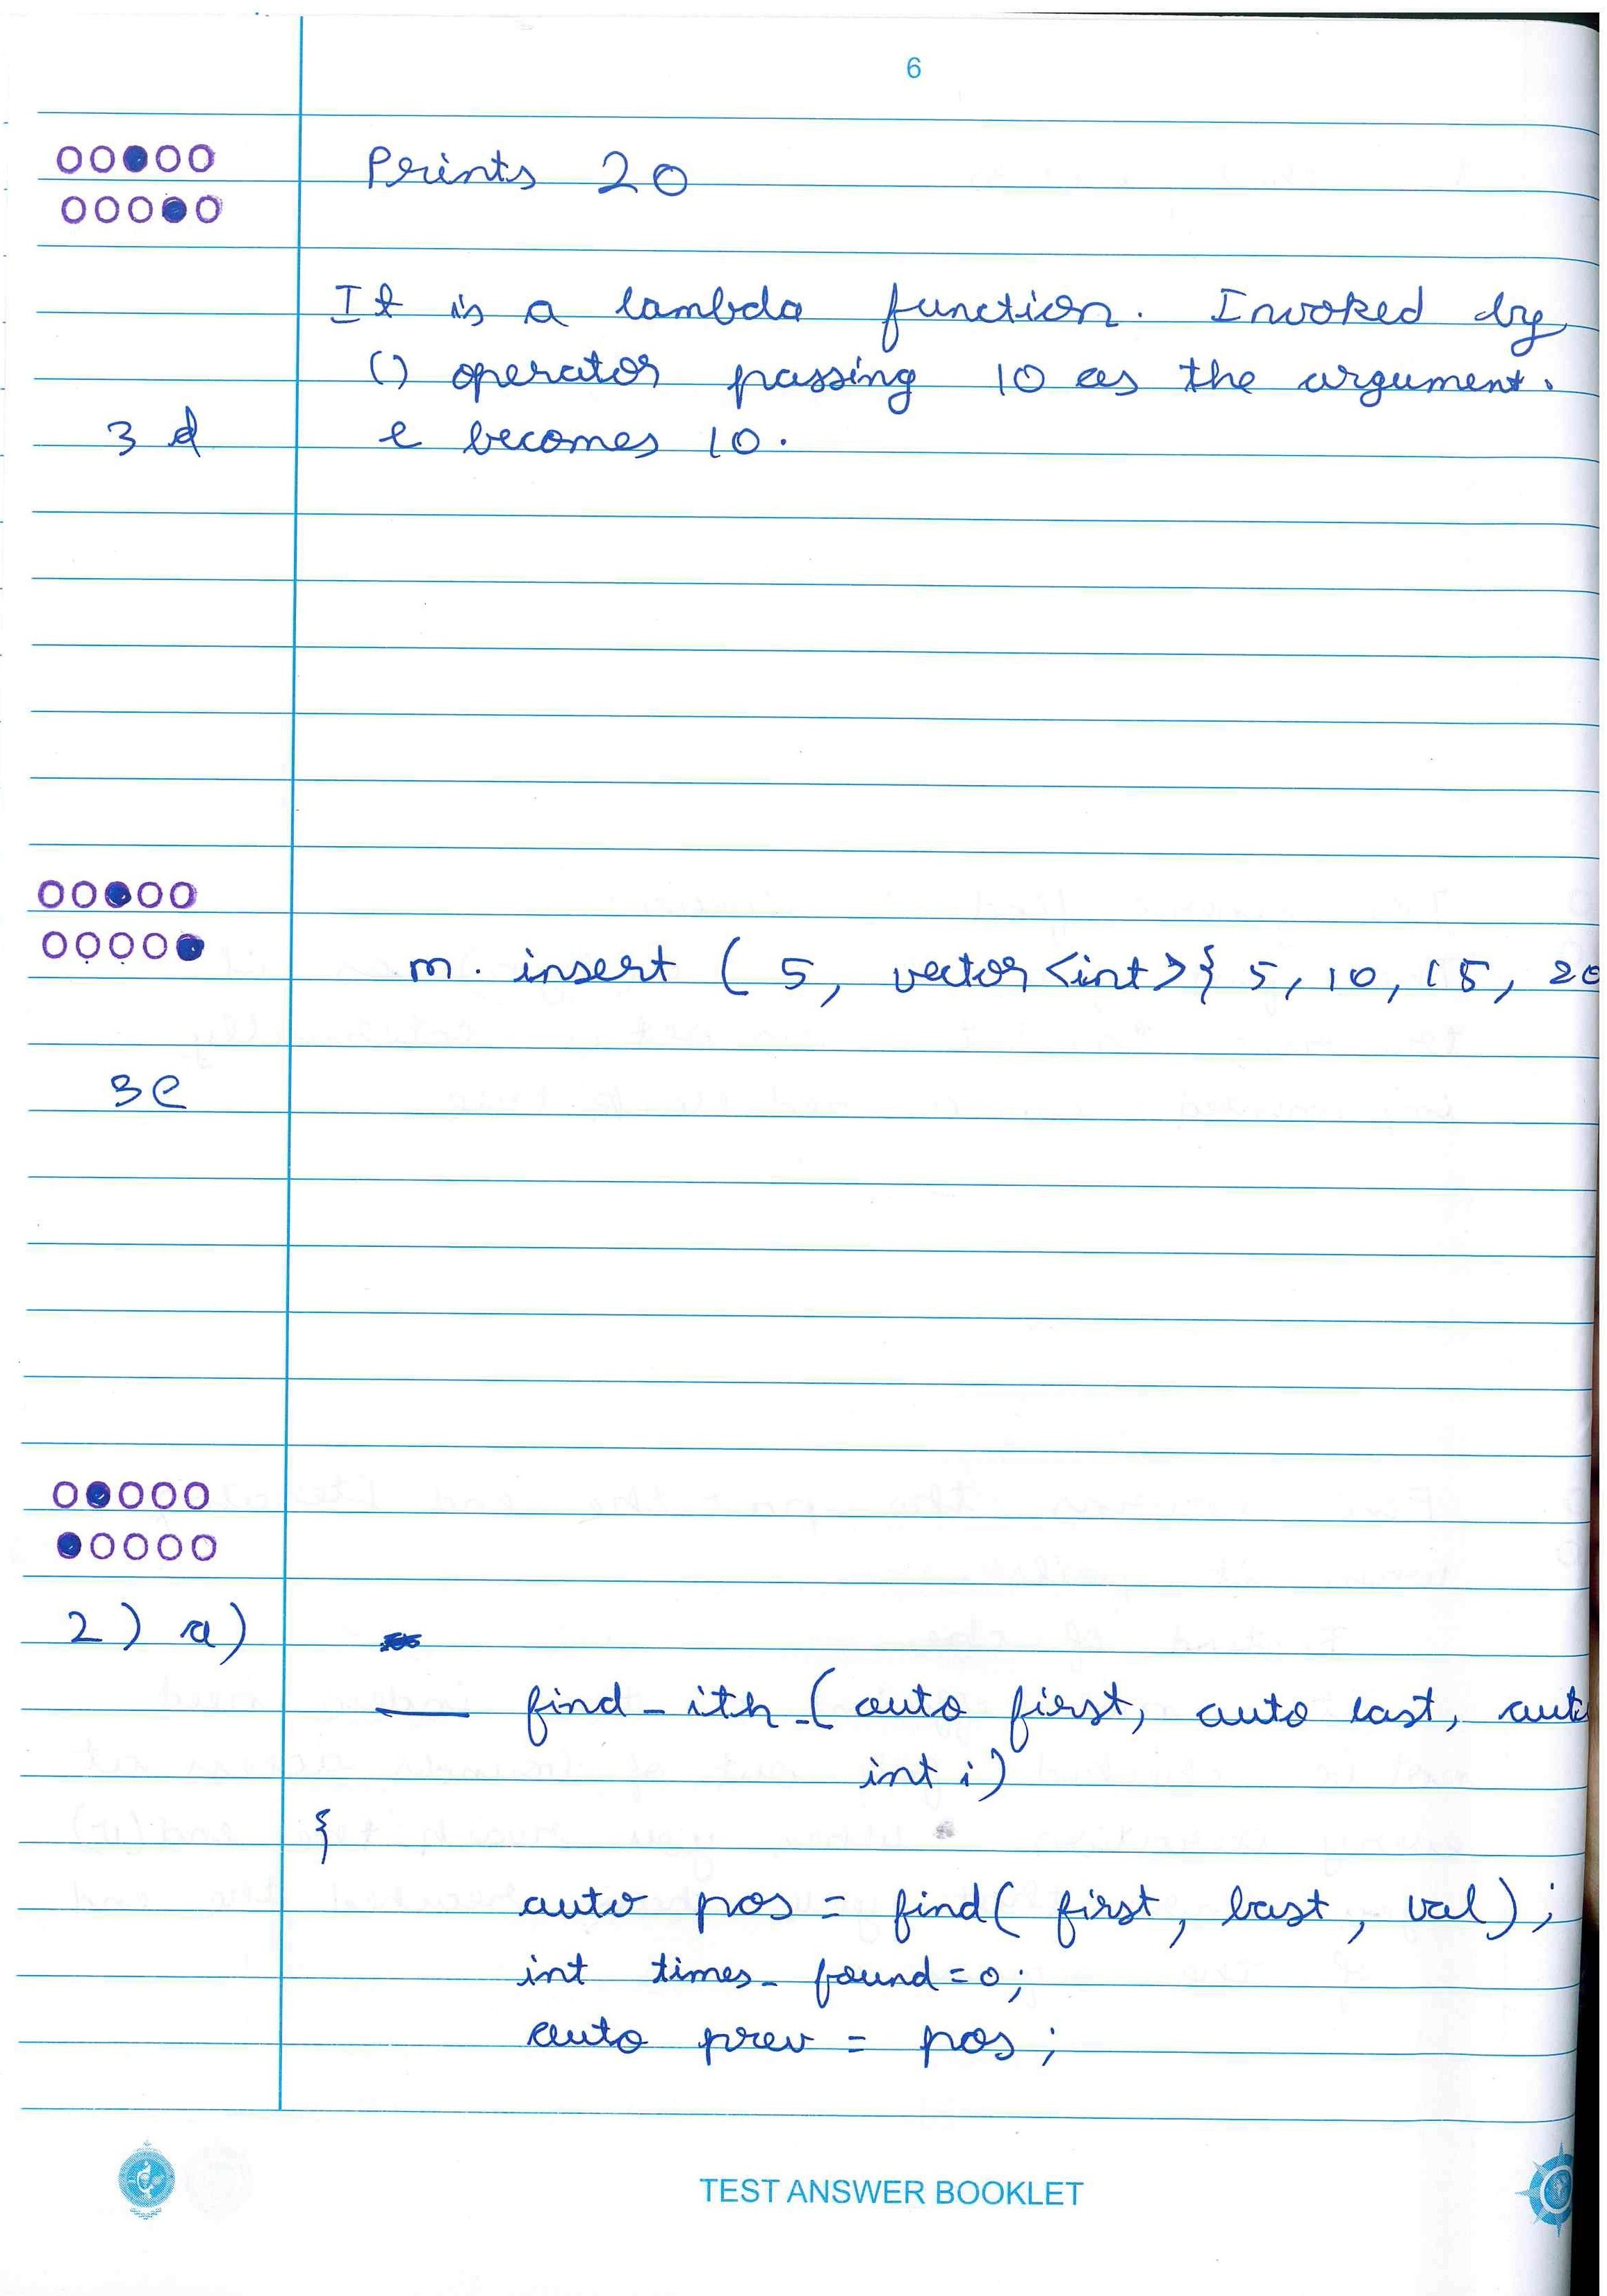 6
Prints 20
It is a lambda function. Invoked by
() operator passing 10 as the argument.
3 d
e becomes 10.
m. insert ( 5, vector <int>{ 5, 10, 15, 20
3e
2) a)
find_ith_( auto first, auto last, aut
int i)
{
auto pos = find( first, last, val);
int times_ found=0;
auto prev = pos;
TEST ANSWER BOOKLET